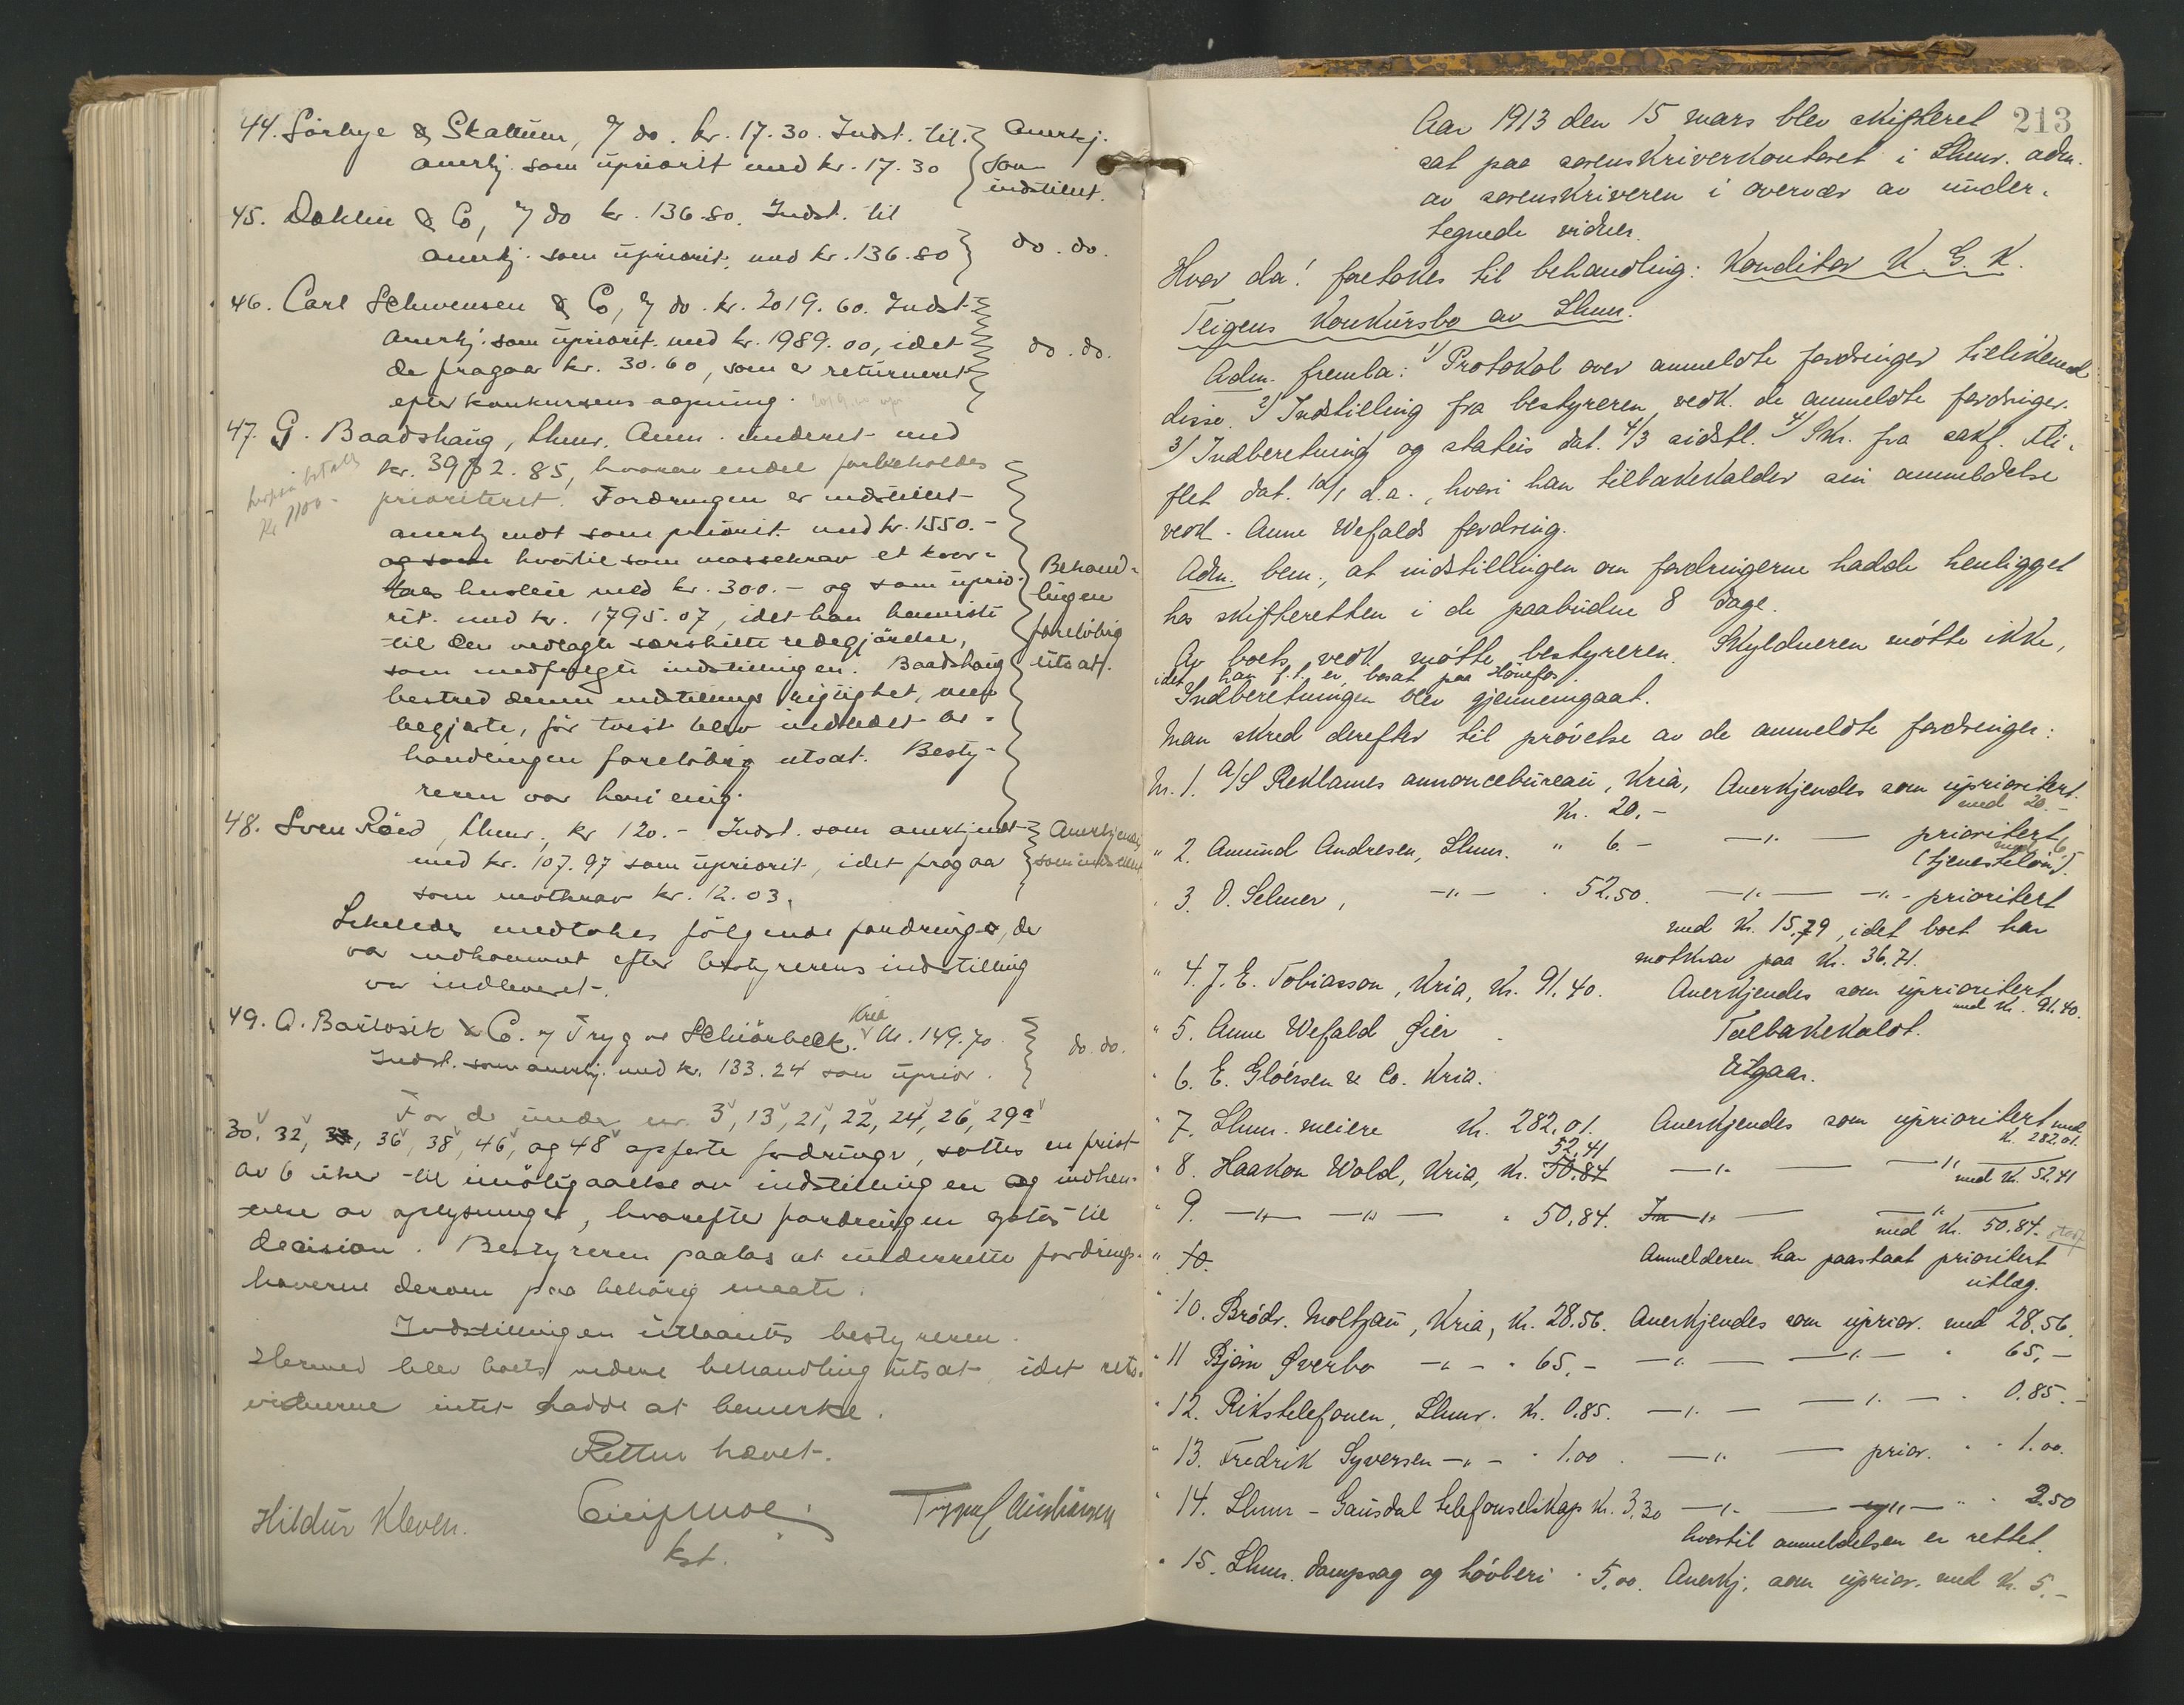 44. Sörbye & Skattum, % do. kr. 17.30. Indst. til. Anerkj.
anerkj. som üpriorit med kr. 17.30 som
indstillet.
45. Dahlin & Co, % do kr. 136.80. Indst. til
anerkj. som üpriorit. med kr. 136.80 do. do.
46. Carl Schwensen & Co, % do. kr. 2019.60. Indst.
anerkj. som üpriorit. med kr. 1989.00, idet do. do.
de fragaar kr. 30.60, som er returneret
efter konkursens aapning.
47. G. Baadshaug, Lhmr. Anm. underet med
kr. 3982.85, hvorav endel forbeholdes
herpaa betalt
kr 1100 -
prioriteret. Fordringen er indstillet
anerkjendt som priorit. med kr. 1550.-
og som hvortil som massekrav et kvar-
tals husleie med kr. 300.- og som üprio-
rit. med kr. 1795.07, idet han henviste
til den vedlagte særskilte redegjörelse,
som medfulgte indstillingen. Baadshaug
bestred denne indstillings rigtighet, men
begjærte, för tvist blev indledet be-
handlingen forelöbig utsat. Besty-
reren var heri enig.
Behand-
lingen
forelöbig
utsat.
48. Sven Röed, Lhmr., kr 120.- Indst. som anerkjendt Anerkjendes
med kr. 107.97 som üpriorit, idet fragaar som indstillet
som motkrav kr. 12.03.
Likeledes medtokes fölgende fordringer, der
var indkommet efter bestyrerens indstilling
var indleveret.
49. A. Bartosik & Co. % Tryg or Schiörbeck. Kria kr. 149.70
Indst. som anerkj. med kr. 133.24 som üprior. do. do.
For de under nr. 3, 13, 21, 22, 24, 26, 29a
30, 32, 33, 36, 38, 46, og 48 opförte fordringer, sattes en frist
av 6 uker til imötegaaelse av indstillingen og indhen-
telse av oplysninger, hvorefter fordringen optas til
decision. Bestyreren paalas at underrette fordrings-
haverne derom paa behörig maate.
Indstillingen utlaantes bestyreren.
Hermed blev boets videre behandling utsat, idet rets-
vidnerne intet hadde at bemerke.
Retten hævet.
Hildur Kleven.
kst.
213
Aar 1913 den 15 mars blev skifteret
sat paa sorenskriverkontoret i Lhmr. adm.
av sorenskriveren i overvær av under-
tegnede vidner.
Hvor da! foretokes til behandling: Konditor K. G. K.
Teigens Konkursbo av Lhmr.
Adm. fremla: 1/ Protokol over anmeldte fordringer tillikemed
disse. 2/ Indstilling fra bestyreren vedk. de anmeldte fordringer.
3/ Indberetning og status dat. 4/3 sidstl. 4/ Skr. fra sakf. Fli-
flet dat. 10/1 d.a., hvori han tilbakekalder sin anmeldelse
vedk. Anne Wefalds fordring.
Adm. bem., at indstillingen om fordringerne hadde henligget
hos skifteretten i de paabudne 8 dage.
Av boets vedk. mötte bestyreren. Skyldneren mötte ikke,
idet han f.t. er bosat paa Hönefos
Indberetningen blev gjennemgaat.
Man skred derefter til prövelse av de anmeldte fordringer:
Nr. 1. A/S Reklames annoncebureau, Kria, Anerkjendes som üprioritert
Kr. 20,- med 20.-
" 2. Amund Andresen, Lhmr. " 6.- —"— prioritert
med 6.
(tjenestelön).
" 3. O. Selmer, —"— " 52.50. —"— —"— prioritert
med Kr. 15,79, idet boet har
motkrav paa Kr. 36.71.
" 4. J. E. Tobiasson, Kria, Kr. 91.40. Anerkjendes som üprioritert
med Kr. 91.40.
" 5. Anne Wefald Öier Talbakekaldt.
" 6. E. Gloërsen & Co. Kria. Utgaar.
" 7. Lhmr. meieri Kr. 282,01. Anerkjendes som üprioritert med
Kr. 282.01.
52,41
" 8. Haakon Wold, Kria, Kr. 50.84 —"— —"—
med Kr. 52.41
" 9. —"— —"— " 50,84. —"— —"—
med Kr. 50.84.
" 10. Anmelderen har paastaat prioritert
utlæg.
" 10. Brödr. Moltzau, Kria, Kr. 28.56. Anerkjendes som üprior. med 28.56.
" 11 Bjön Överbo —"— " 65,- —"— —"— " 65,-
" 12. Rikstelefonen, Lhmr. Kr. 0.85. —"— —"— " 0.85.-
" 13. Fredrik Syversen —"— " 1.00. —"— prior. " " 1.00.
" 14. Lhmr - Gausdal telefonselskap Kr. 3,30 —"— —"— " " 2.50
hvortil anmeldelsen er rettet.
" 15. Lhmr. Dampsag og hövleri " 5,00. Anerkj. som üprior. med Kr. 5.-